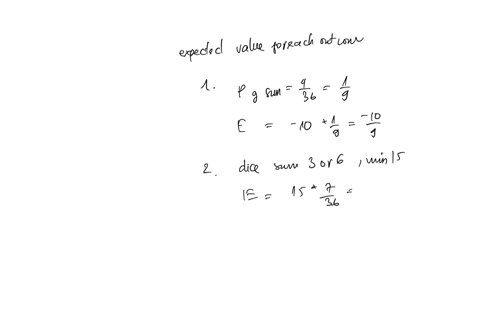 expected value for each outcome
1. P 9 sum = 4/36 = 1/9
E = -10 * 1/9 = -10/9
2. dice sum 3 or 6, win 15
E = 15 * 7/36 =